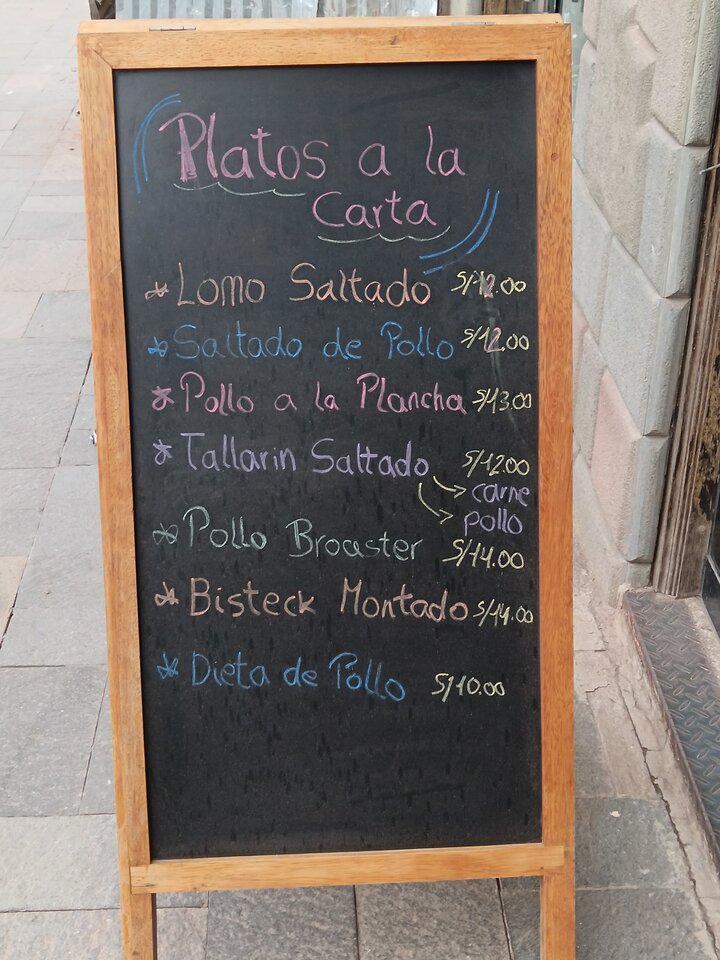 Platos a la
Carta
* Lomo Saltado S/12.00
* Saltado de Pollo S/12.00
* Pollo a la Plancha S/13.00
* Tallarin Saltado S/12.00
→ carne
→ pollo
* Pollo Broaster S/14.00
* Bisteck Montado S/14.00
* Dieta de Pollo S/10.00